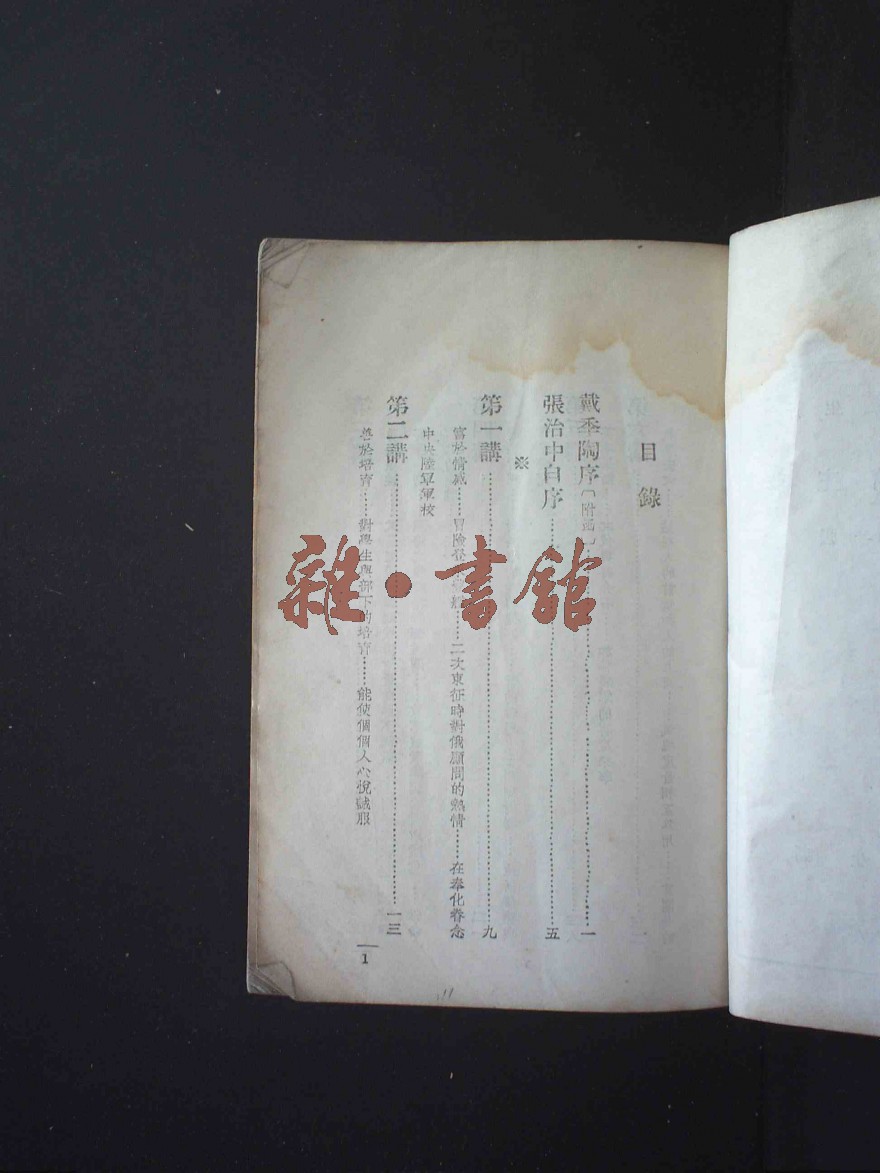 目錄
戴季陶序〔附函〕……一
張治中自序……五
※
第一講……九
富於情感……冒險登……二次東征時對俄顧問的熱情……在奉化眷念
中央陸軍軍校
第二講……一三
善於培育……對學生與部下的培育……能使個個人心悅誠服
1
雜·書館